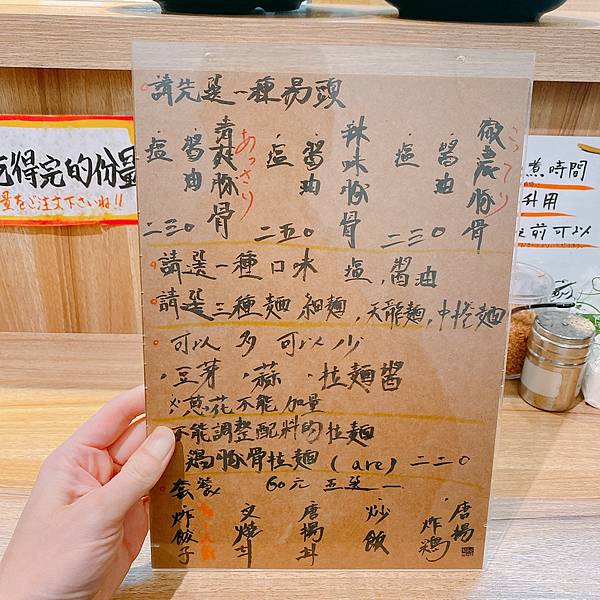 請先選一種湯頭
微濃豚骨
こってり
醬油
塩
二三0
辣味豚骨
醬油
塩
二五0
清爽豚骨
あっさり
醬油
塩
二三0
請選一種口味 塩,醬油
請選三種麵 細麵,天龍麵,中捲麵
可以多 可以少
豆芽、蒜、拉麵醬
蔥花不能加量
不能調整配料的拉麵
鶏豚骨拉麵(are)二二0
套餐 60元 五選一
唐揚
炸鶏
炒飯
唐揚丼
叉燒丼
炸餃子
吃得完的份量
量をご注文下さいね!!
煮時間
利用
前可以